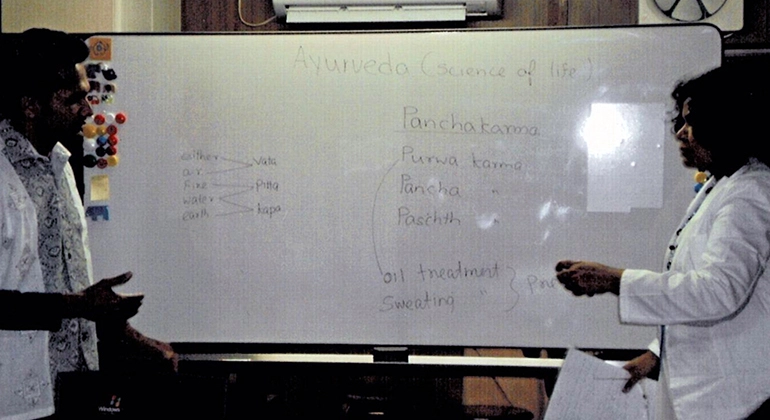 Ayurveda (science of life)
Panchakarma
Purwa karma
Pancha "
Paschth "
oil treatment
Sweating "
either
air
Fire
water
earth
vata
Pitta
kapa
Windows